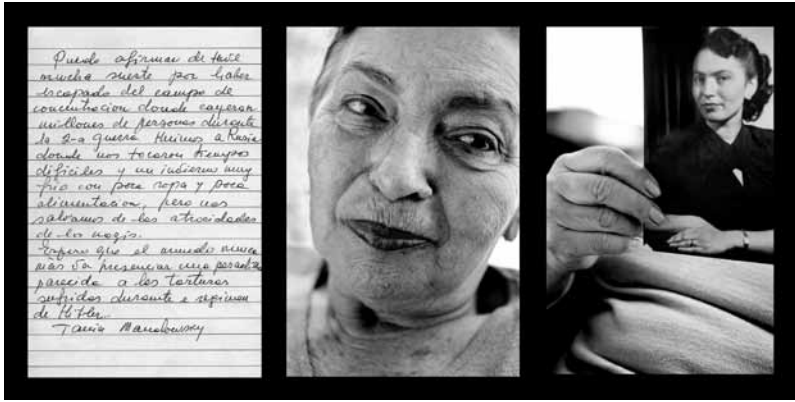 Puedo afirmar de tuve
mucha suerte por haber
escapado del campo de
concentracion donde cayeron
millones de personas durante
la 2-a guerra. Huimos a Rusia
donde nos tocaron tiempos
dificiles y un invierno muy
frio con poca ropa y poca
alimentacion, pero nos
salvamos de las atrocidades
de los nazis.
Espero que el mundo nunca
más va presenciar una
parecida a las torturas
sufridas durante e regimen
de Hitler.
Tania